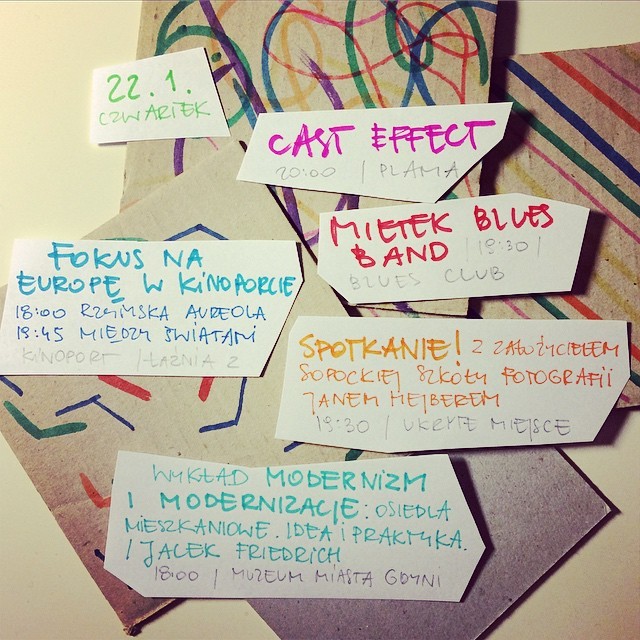 22.1.
CZWARTEK
CAST EFFECT
20:00 / PLAMA
MIETEK BLUES
BAND | 19:30 |
BLUES CLUB
FOKUS NA
EUROPĘ W KINOPORCIE
18:00 RZYMSKA AUREOLA
19:45 MIĘDZY ŚWIATAMI
KINOPORT / ŁAŹNIA 2
SPOTKANIE! Z ZAŁOŻYCIELEM
SOPOCKIEJ SZKOŁY FOTOGRAFII
JANEM MEJBEREM
19:30 / UKRYTE MIEJSCE
WYKŁAD MODERNIZM
I MODERNIZACJE: OSIEDLA
MIESZKANIOWE. IDEA I PRAKTYKA.
/ JACEK FRIEDRICH
18:00 / MUZEUM MIASTA GDYNI